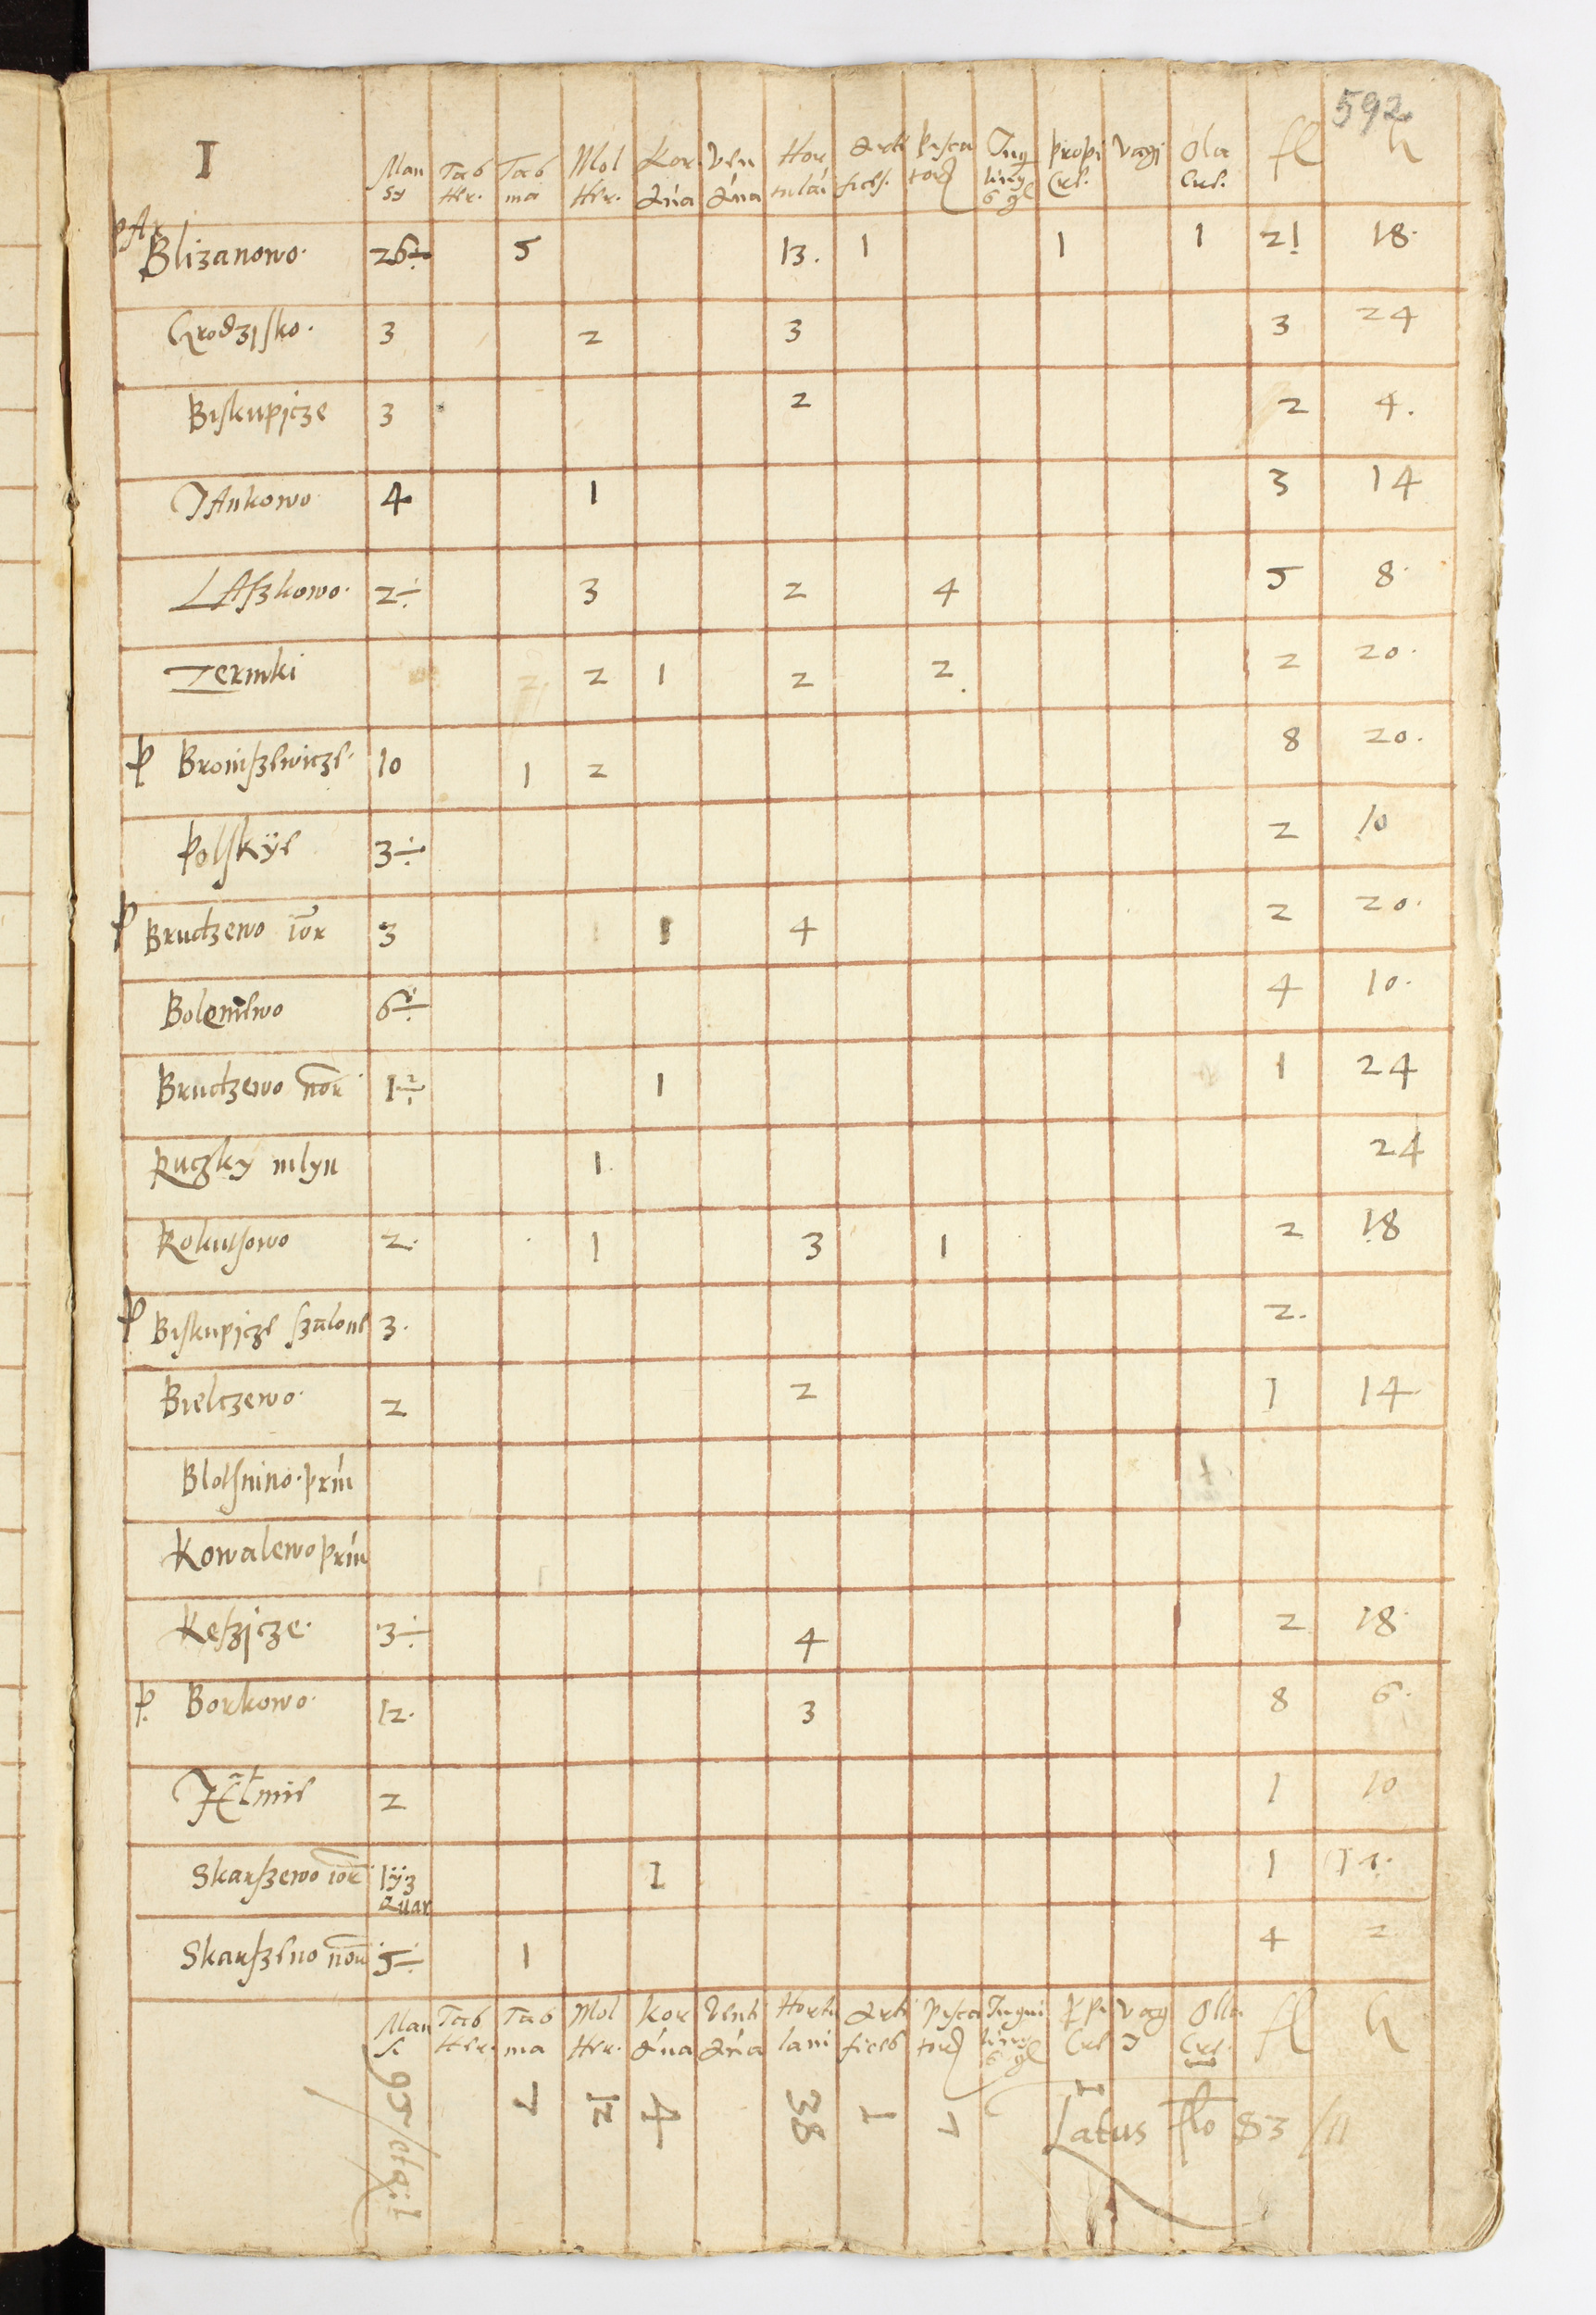 592
I Man sy Tab Her. Tab ma Mol Her. Kor ína Ven ína Hor tulāi Arti fices. Pisca tor Inq 6 gl Propi Cre. Vagi Ola Cre. fl h
pAr Blizanowo. 26÷ 5 13. 1 1 1 21 18.
Grodzisko. 3 2 3 3 24
Biskupjcze 3 2 2 4.
JAnkowo 4 1 3 14
LAszkowo. 2÷ 3 2 4 5 8.
Zernki 2 1 2 2 2 20.
P Broniszewicze. 10 1 2 8 20.
Polskÿe 3÷ 2 10
P Brudzewo ior 3 1 4 2 20.
Bolemewo 6÷ 4 10.
Brudzewo nor 1÷ 1 1 24
Ruczky mlyn 1. 24
Rokutsowo 2. 1 3 1 2 18
P Biskupjcze szalone 3. 2.
Bielczewo. 2 2 1 14.
Blotsnino. prín
Kowalewo prín
Keszjcze. 3÷ 4 2 18.
P. Borkowo. 12. 3 8 6.
2 1 10
Skarszewo ior 1 ÿ3 quar 1 1
Skarszewo nor 5÷ 1 4 2
Man si Tab Her. Tab ma Mol Her. Kor ína Venti ína Hortu lani Arti fices Pisca tor Inqui 6 gl Cre Vag J Olla Cre. fl h
95 7 12 4 38 1 7 1
Latus flo 83/11